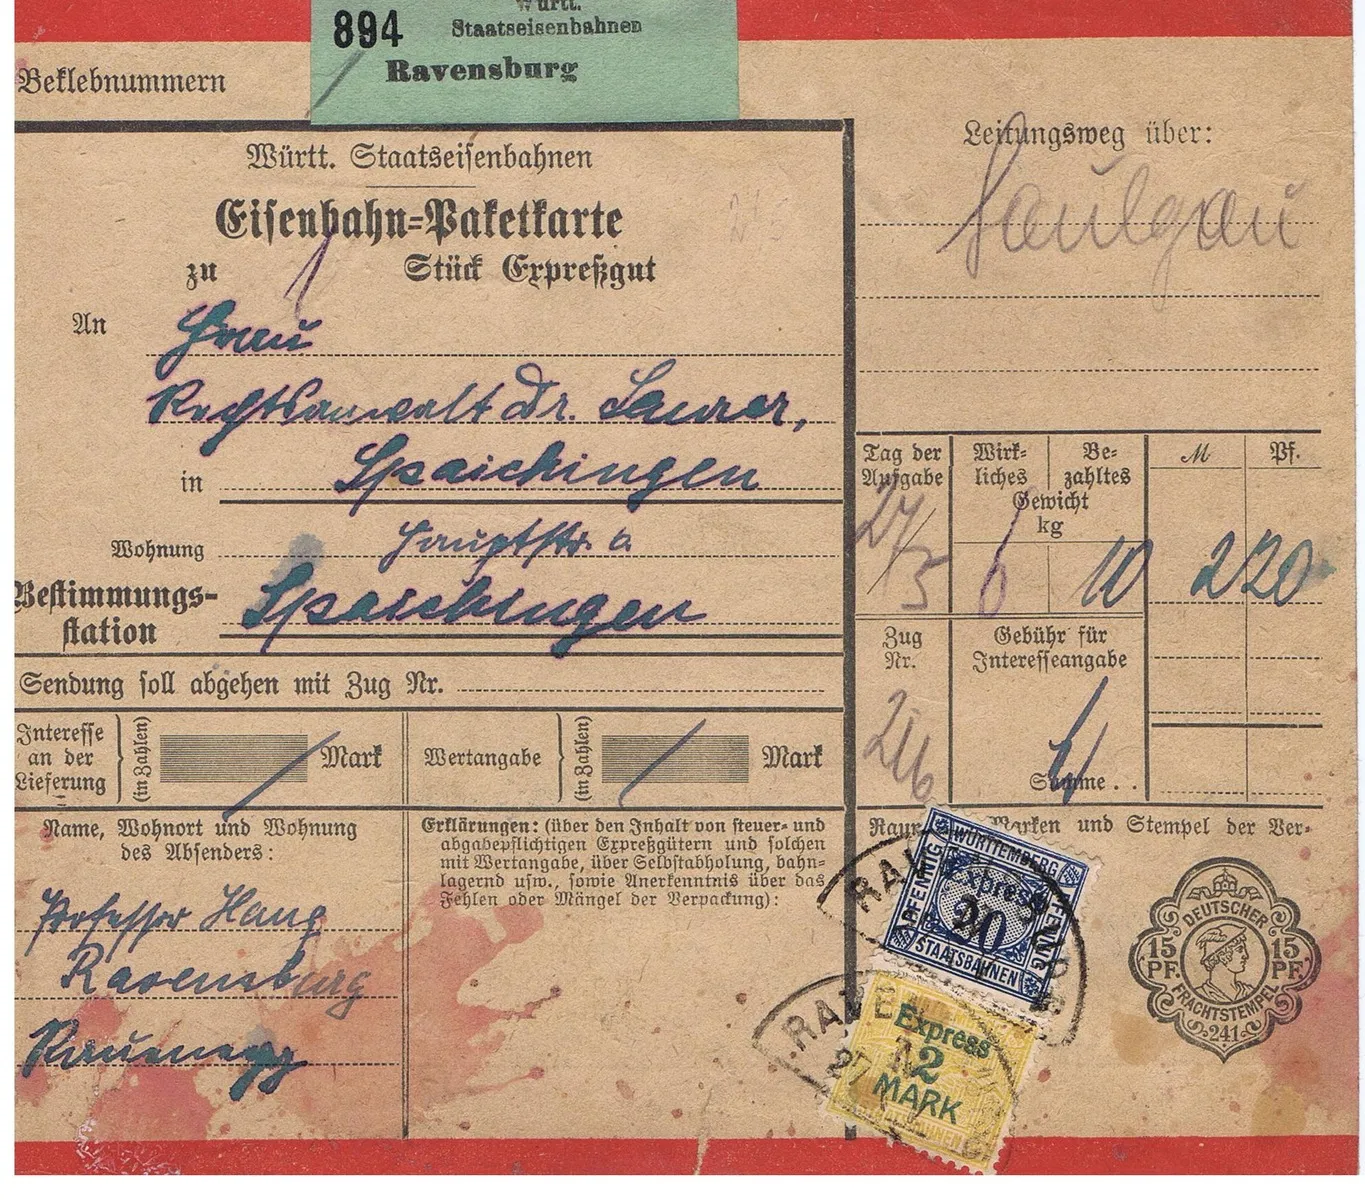 894
Württ.
Staatseisenbahnen
Ravensburg
Beklebnummern
Württ. Staatseisenbahnen
Eisenbahn-Paketkarte
zu 1 Stück Expreßgut
An Frau
Rechtsanwalt Dr. Saurer,
in Spaichingen
Wohnung Hauptstr. a
Bestimmungs-
station Spaichingen
Sendung soll abgehen mit Zug Nr.
Interesse
an der
Lieferung
(in Zahlen)
Mark
Wertangabe
(in Zahlen)
Mark
Name, Wohnort und Wohnung
des Absenders:
Professor Haug
Ravensburg
Rauenegg
Erklärungen: (über den Inhalt von steuer- und
abgabepflichtigen Expreßgütern und solchen
mit Wertangabe, über Selbstabholung, bahn-
lagernd usw., sowie Anerkenntnis über das
Fehlen oder Mängel der Verpackung):
Leitungsweg über:
Saulgau
Tag der
Aufgabe
24/5
Wirk-
liches
Be-
zahltes
Gewicht
kg
6 10
M Pf.
2 20
Zug
Nr.
Gebühr für
Interesseangabe
Summe . .
Marken und Stempel der Ver-
WÜRTTEMBERG
PFENNIG
Express
20
PFENNIG
STAATSBAHNEN
Express
2
MARK
DEUTSCHER
15 PF.
15 PF.
FRACHTSTEMPEL
241